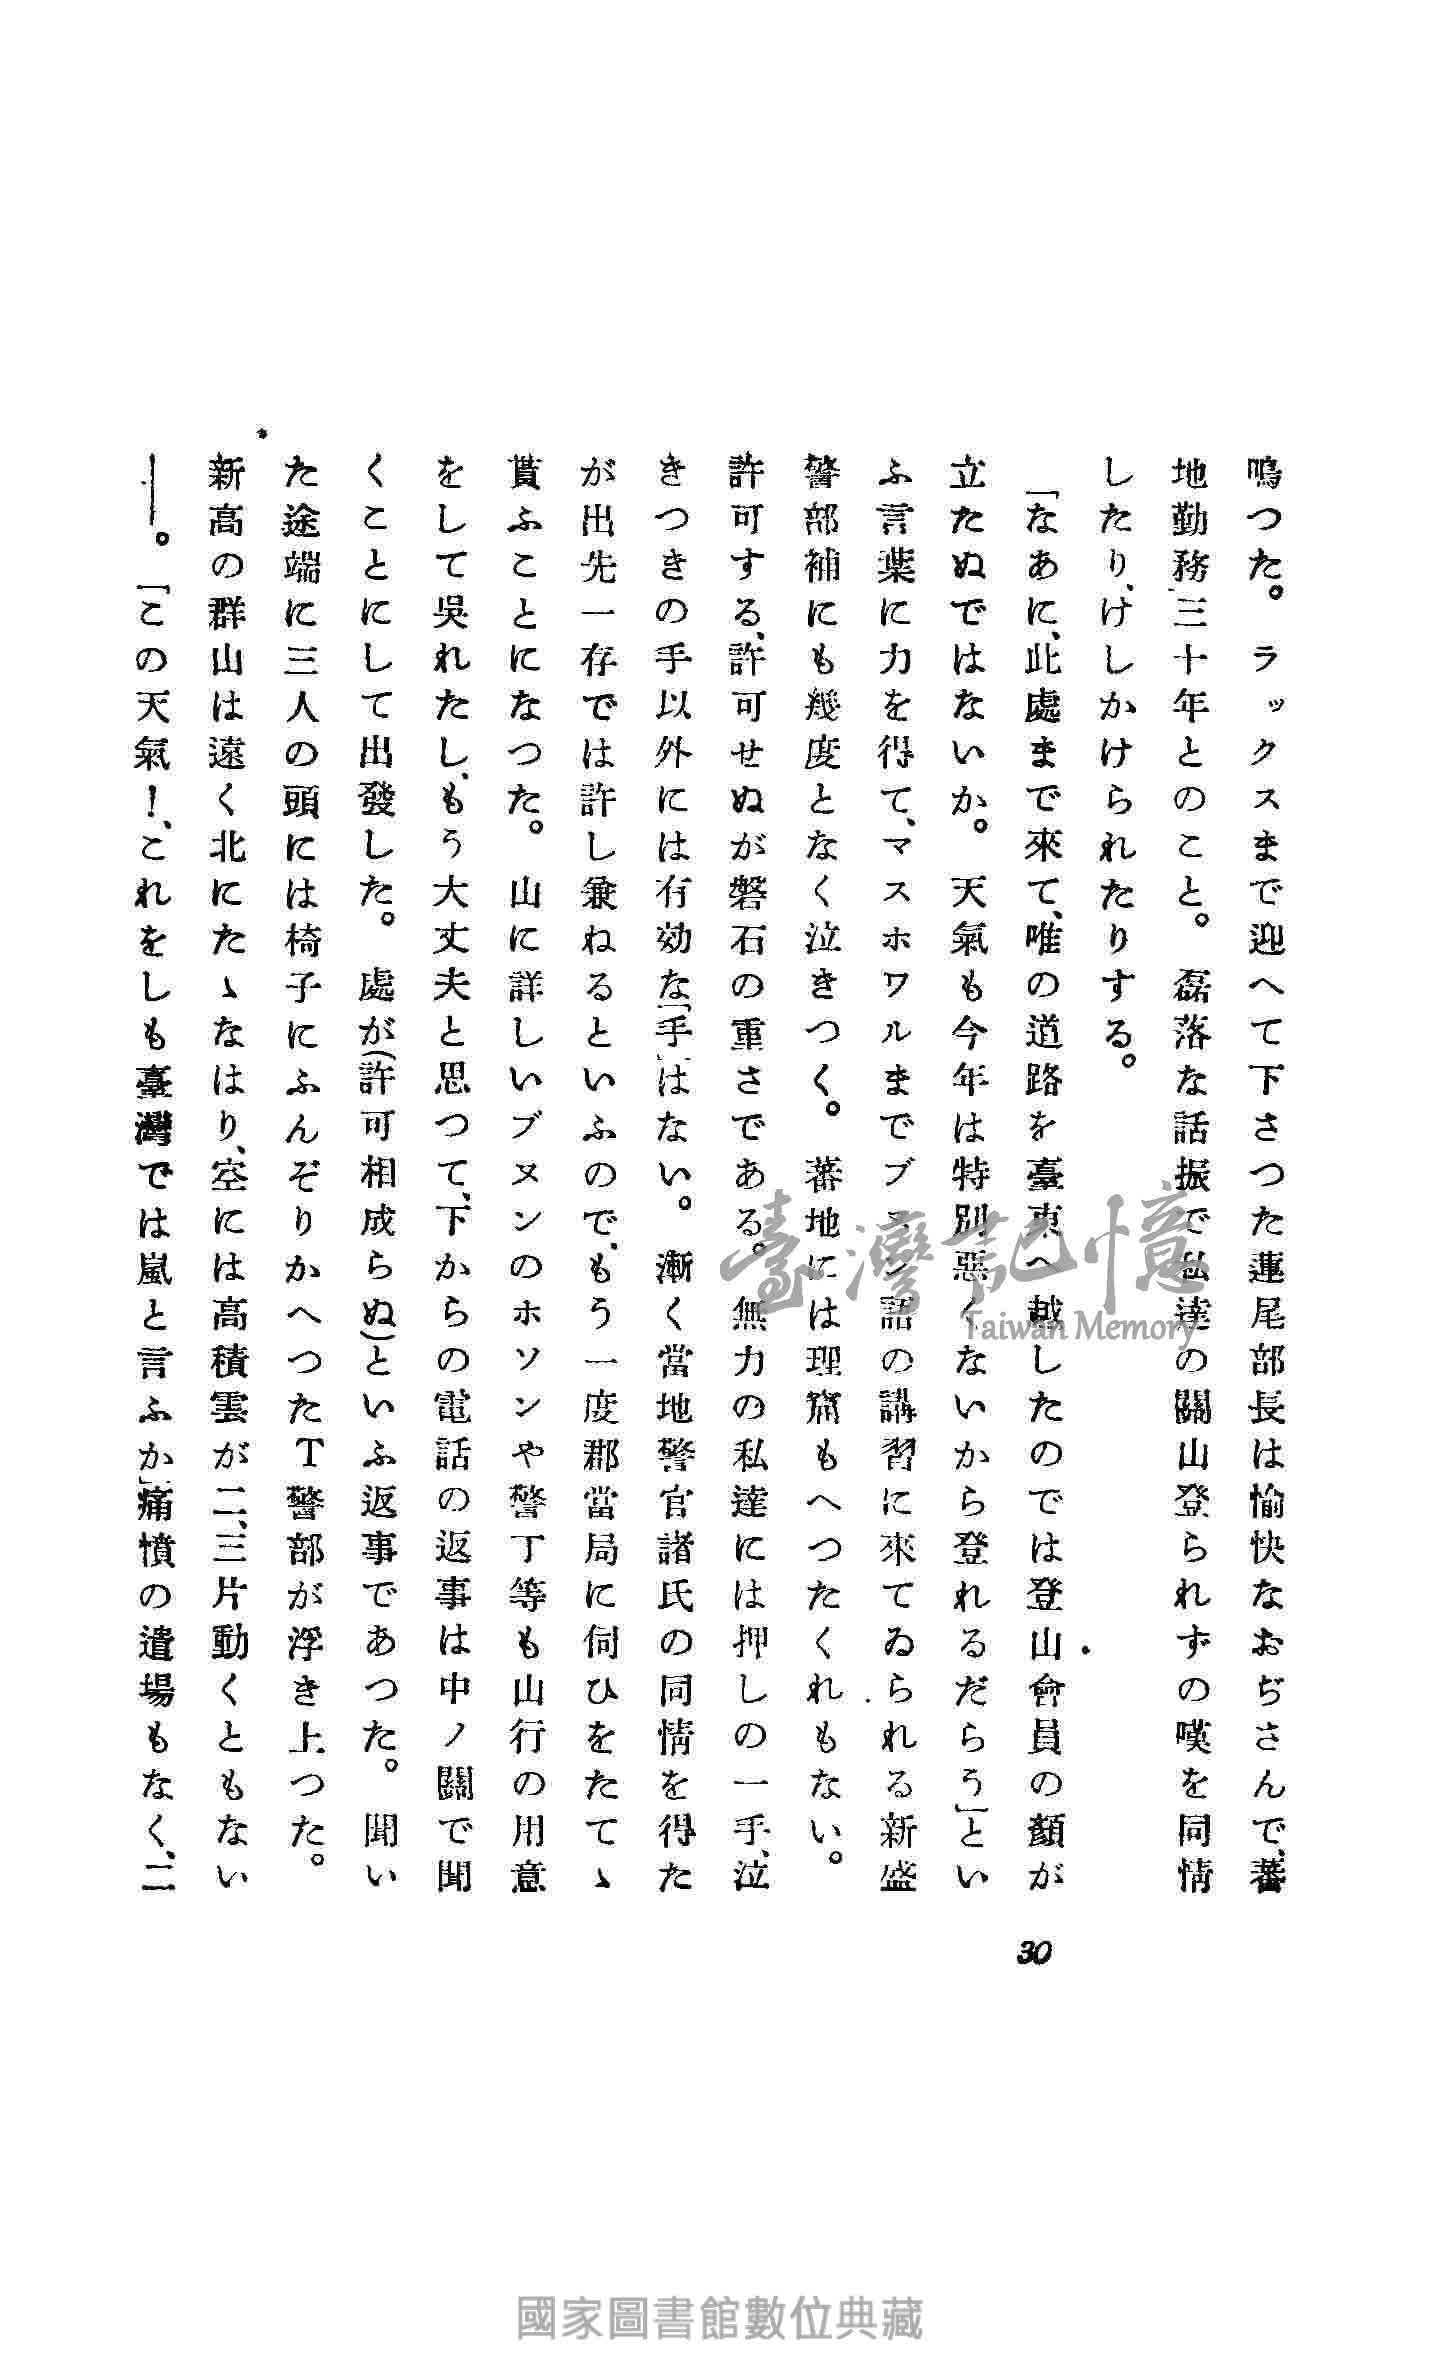 鳴つた。ラックスまで迎へて下さつた蓮尾部長は愉快なおぢさんで、蕃
地勤務三十年とのこと。磊落な話振で私達の關山登られずの嘆を同情
したり、けしかけられたりする。
「なあに、此處まで來て、唯の道路を臺東へ越したのでは登山會員の顏が
立たぬではないか。天氣も今年は特別惡くないから登れるだらう」とい
ふ言葉に力を得て、マスホワルまでブヌン語の講習に來てゐられる新盛
警部補にも幾度となく泣きつく。蕃地には理窟もへつたくれもない。
許可する、許可せぬが磐石の重さである。無力の私達には押しの一手、泣
きつきの手以外には有効な「手」はない。漸く當地警官諸氏の同情を得た
が出先一存では許し兼ねるといふので、もう一度郡當局に伺ひをたてゝ
貰ふことになつた。山に詳しいブヌンのホソンや警丁等も山行の用意
をして吳れたし、もう大丈夫と思つて、下からの電話の返事は中ノ關で聞
くことにして出發した。處が（許可相成らぬ）といふ返事であつた。聞い
た途端に三人の頭には椅子にふんぞりかへつたT警部が浮き上つた。
新高の群山は遠く北にたゝなはり、空には高積雲が二、三片動くともない
――。「この天氣！、これをしも臺灣では嵐と言ふか」痛憤の遣場もなく、二
30
臺灣記憶
Taiwan Memory
國家圖書館數位典藏